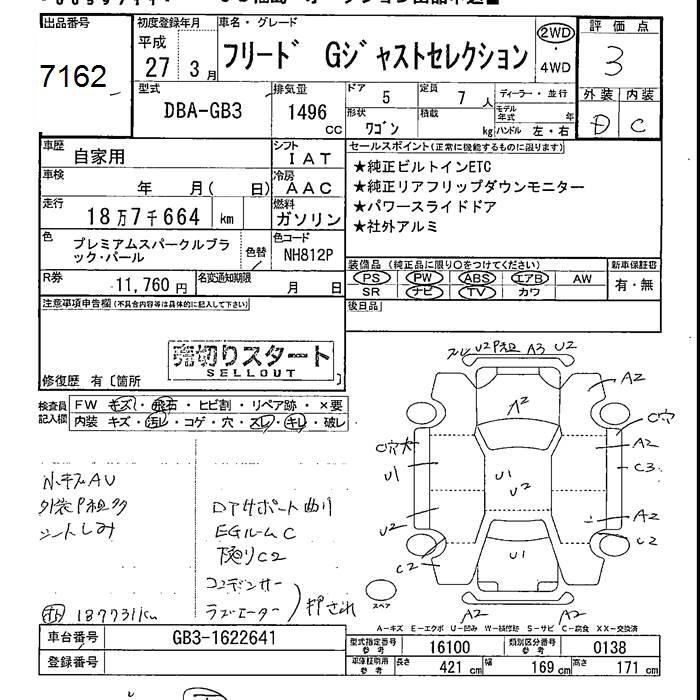 出品番号
7162
初度登録年月
平成
27 3月
車名・グレード
フリード Gジャストセレクション
2WD
・
4WD
評価点
3
外装 内装
D C
型式
DBA-GB3
排気量
1496
cc
ドア 5
定員 7人
形状 ワゴン
積載 kg
ディーラー・並行
モデル年式 年
ハンドル 左・右
車歴 自家用
シフト IAT
車検 年 月( 日)
冷房 AAC
走行 18万7千664 km
燃料 ガソリン
色 プレミアムスパークルブラック・パール
色替
色コード NH812P
R券 11,760円
名変通知期限 月 日
セールスポイント(正常に機能するものに限ります)
★純正ビルトインETC
★純正リアフリップダウンモニター
★パワースライドドア
★社外アルミ
装備品(純正品に限り○をつけてください)
PS PW ABS エアB AW
SR ナビ TV カワ
新車保証書
有・無
後日品
注意事項申告欄(不具合内容等は具体的に記入して下さい)
売切りスタート
SELLOUT
修復歴 有〔箇所 〕
検査員記入欄
FW キズ・飛石・ヒビ割・リペア跡・×要
内装 キズ・汚レ・コゲ・穴・スレ・キレ・破レ
小キズAU
外装P粗多
シートしみ
DTサポート曲り
EGルームC
下廻りC2
コンデンサー
ラジエーター
押され
187731km
U2 P粗 A3 U2
A2
A2
C穴
A2
C3
A2
C2
C穴大
U1
U2
C2
U1
U2
U1
A2
A2
スペア
A-キズ E-エクボ U-凹み W-補修跡 S-サビ C-腐食 XX-交換済
車台番号 GB3-1622641
登録番号
型式指定番号 参考 16100
類別区分番号 参考 0138
車庫証明用 参考
長さ 421 cm
幅 169 cm
高さ 171 cm